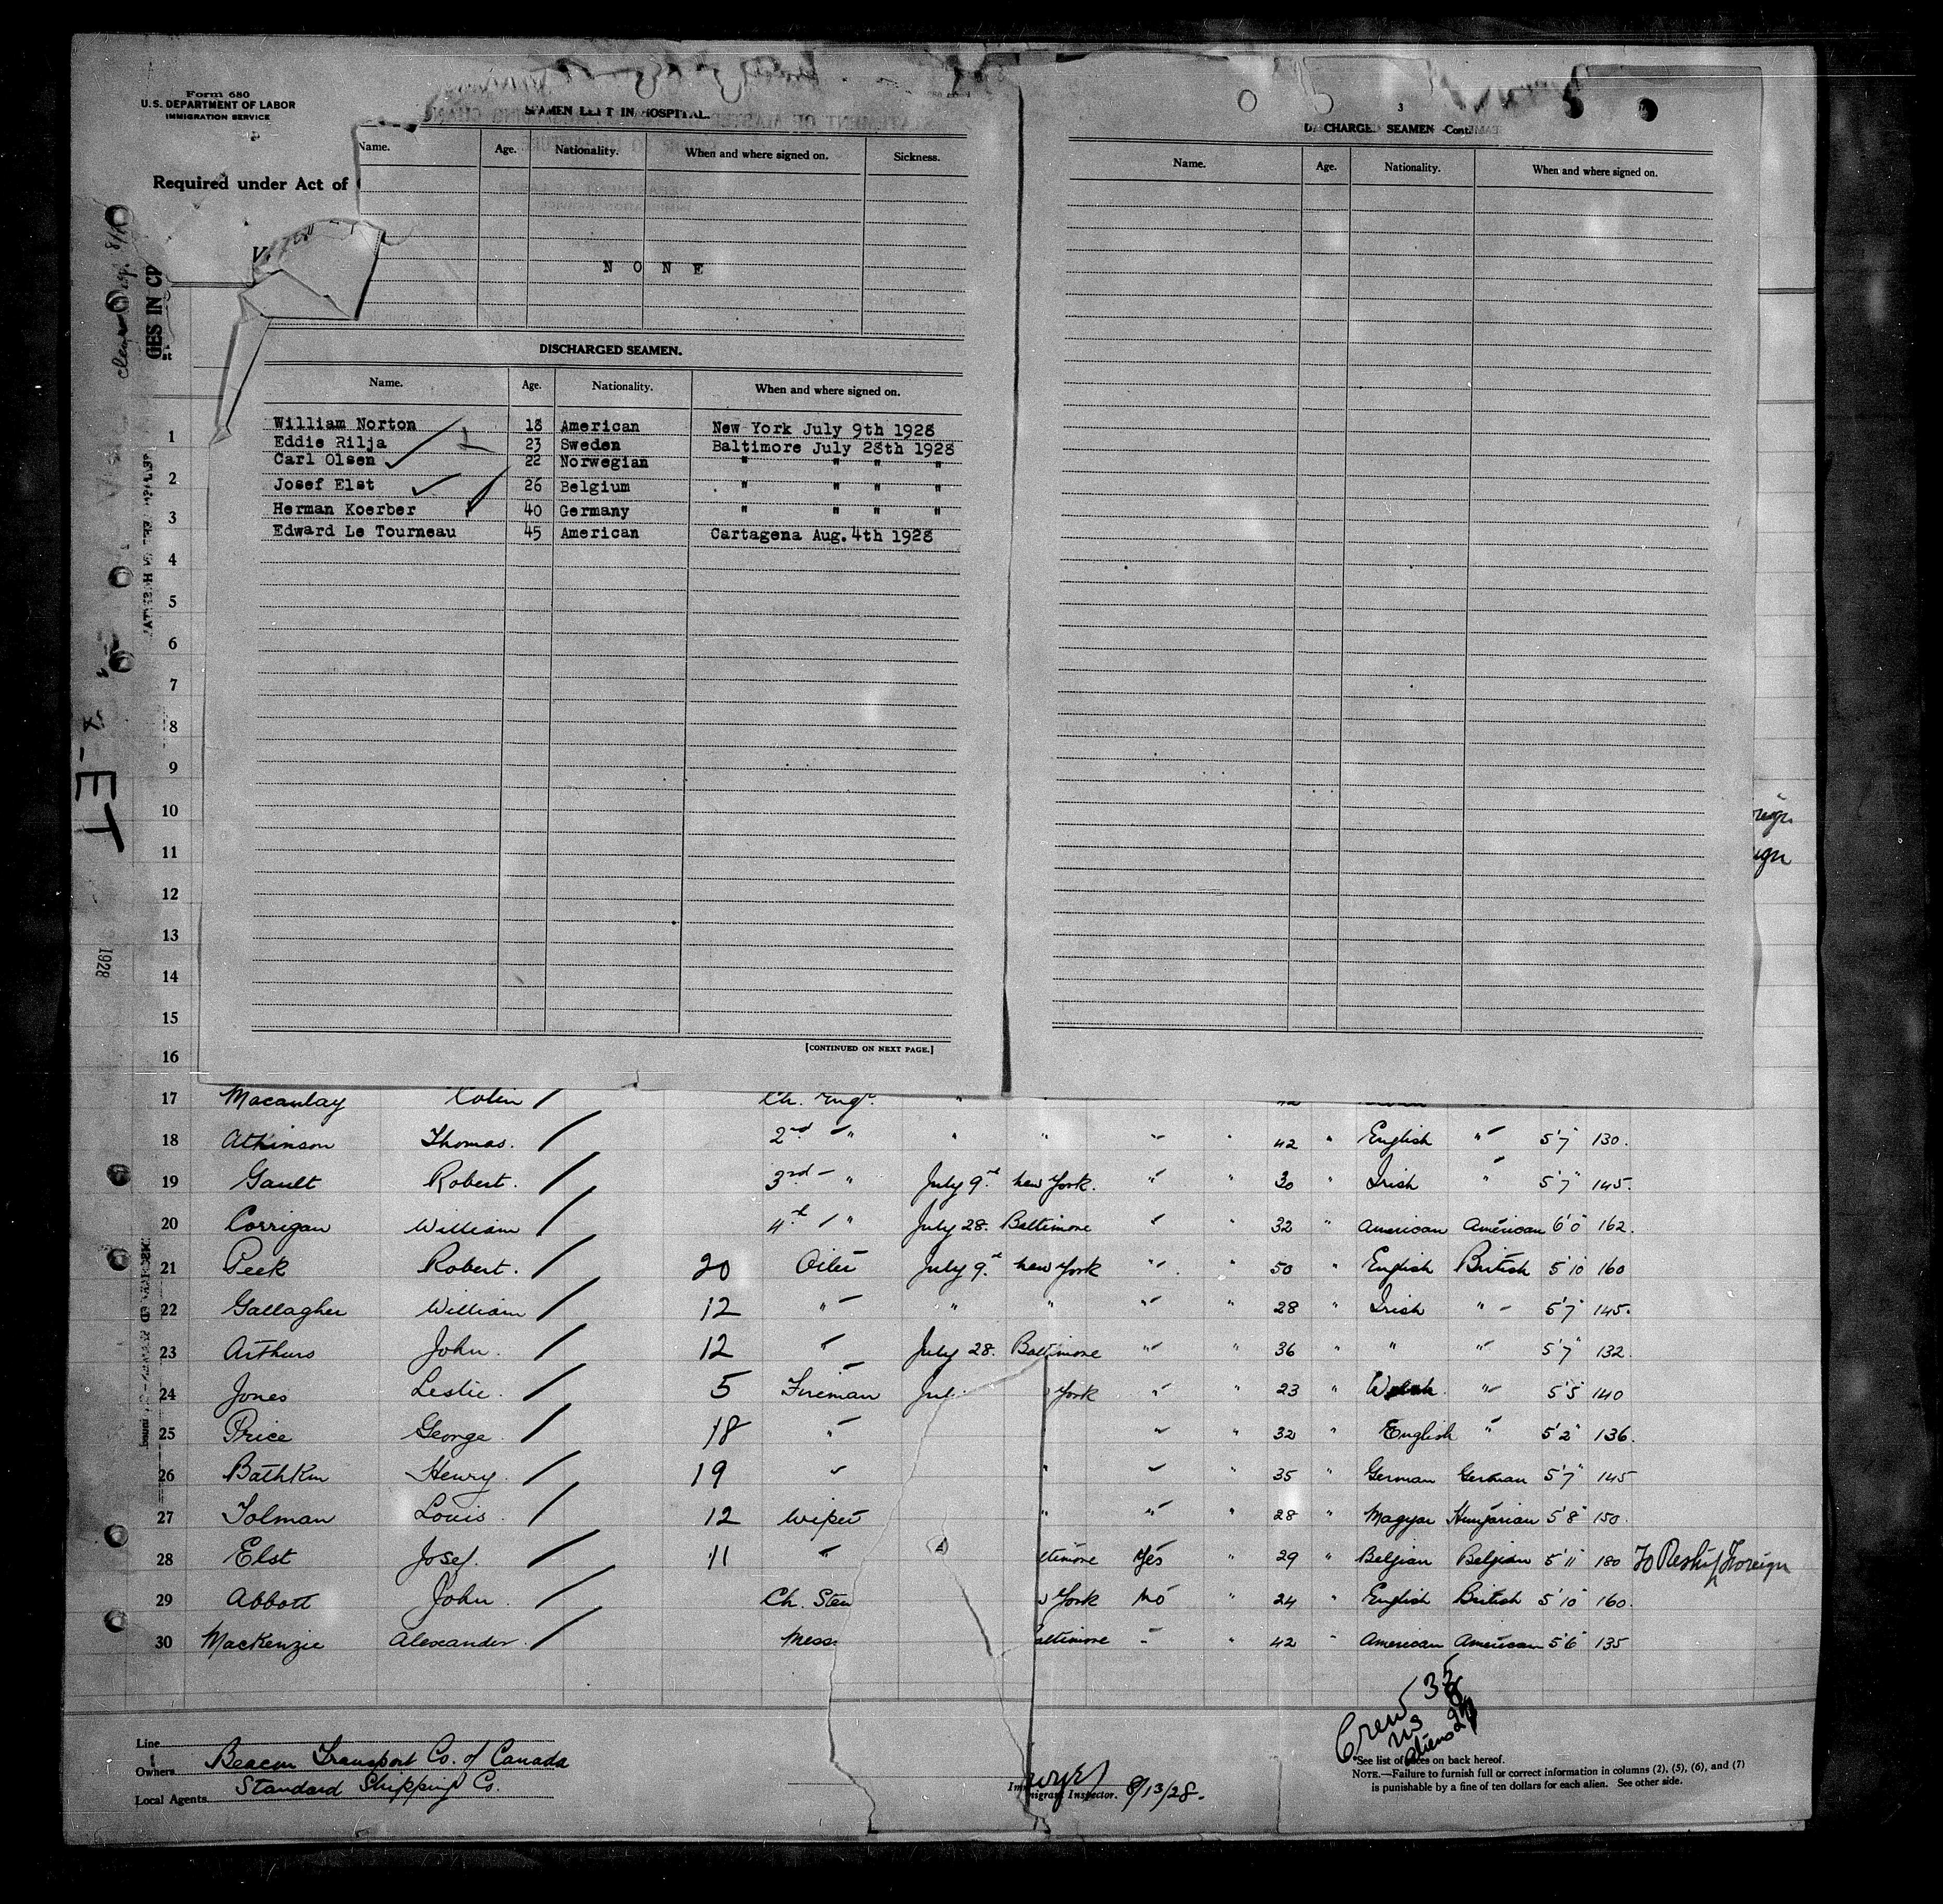 Form 680
U.S. DEPARTMENT OF LABOR
IMMIGRATION SERVICE
Required under Act of
SEAMEN LEFT IN HOSPITAL.
Name. Age. Nationality. When and where signed on. Sickness.
N O N E
DISCHARGED SEAMEN.
Name. Age. Nationality. When and where signed on.
William Norton 18 American New York July 9th 1928
Eddie Rilja 23 Sweden Baltimore July 28th 1928
Carl Olsen 22 Norwegian " " " "
Josef Elst 26 Belgium " " " "
Herman Koerber 40 Germany " " " "
Edward Le Tourneau 45 American Cartagena Aug. 4th 1928
[CONTINUED ON NEXT PAGE.]
3
DISCHARGED SEAMEN Cont.
Name. Age. Nationality. When and where signed on.
GES IN CR
1928
1
2
3
4
5
6
7
8
9
10
11
12
13
14
15
16
17 Macaulay Colin Ch. Engr.
18 Atkinson Thomas. 2nd " " " " " 42 " English " 5'7" 130.
19 Gault Robert. 3rd " July 9th New York. " " 30 " Irish " 5'7" 145.
20 Corrigan William 4th " July 28. Baltimore " " 32 " American American 6'0" 162.
21 Peek Robert. 20 Oiler July 9th New York " " 50 " English British 5'10 160
22 Gallagher William 12 " " " " " 28 " Irish " 5'7" 145.
23 Arthurs John. 12 " July 28. Baltimore " " 36 " " " 5'7" 132.
24 Jones Leslie. 5 Fireman Jul York " " 23 " Welsh " 5'5" 140
25 Price George. 18 " " " 32 " English " 5'2" 136.
26 Henry. 19 " " " " 35 " German German 5'7" 145
27 Tolman Louis. 12 Wiper " " " 28 " Magyar Hungarian 5'8" 150.
28 Elst Josef. 11 " ltimore Yes " 29 " Belgian Belgian 5'11" 180 To Reship Foreign
29 Abbott John. Ch. Stew York No " 24 " English British 5'10" 160.
30 MacKenzie Alexander. Mess altimore " " 42 " American American 5'6" 135
Crew 35
aliens
Line
Owners Beacon Transport Co. of Canada
Local Agents Standard Shipping Co.
Immigrant Inspector. 8/13/28.
*See list of races on back hereof.
NOTE.—Failure to furnish full or correct information in columns (2), (5), (6), and (7)
is punishable by a fine of ten dollars for each alien. See other side.